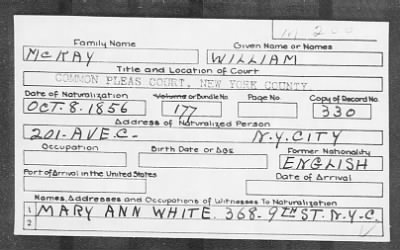 M 200
Family Name Given Name or Names
McKAY WILLIAM
Title and Location of Court
COMMON PLEAS COURT, NEW YORK COUNTY
Date of Naturalization Volume or Bundle No Page No. Copy of Record No.
OCT. 8. 1856 177 330
Address of Naturalized Person
201- AVE. C- N.Y. CITY
Occupation Birth Date or Age Former Nationality
ENGLISH
Port of Arrival in the United States Date of Arrival
Names, Addresses and Occupations of Witnesses To Naturalization
1 MARY ANN WHITE. 368- 9TH ST. N.Y.C.
2